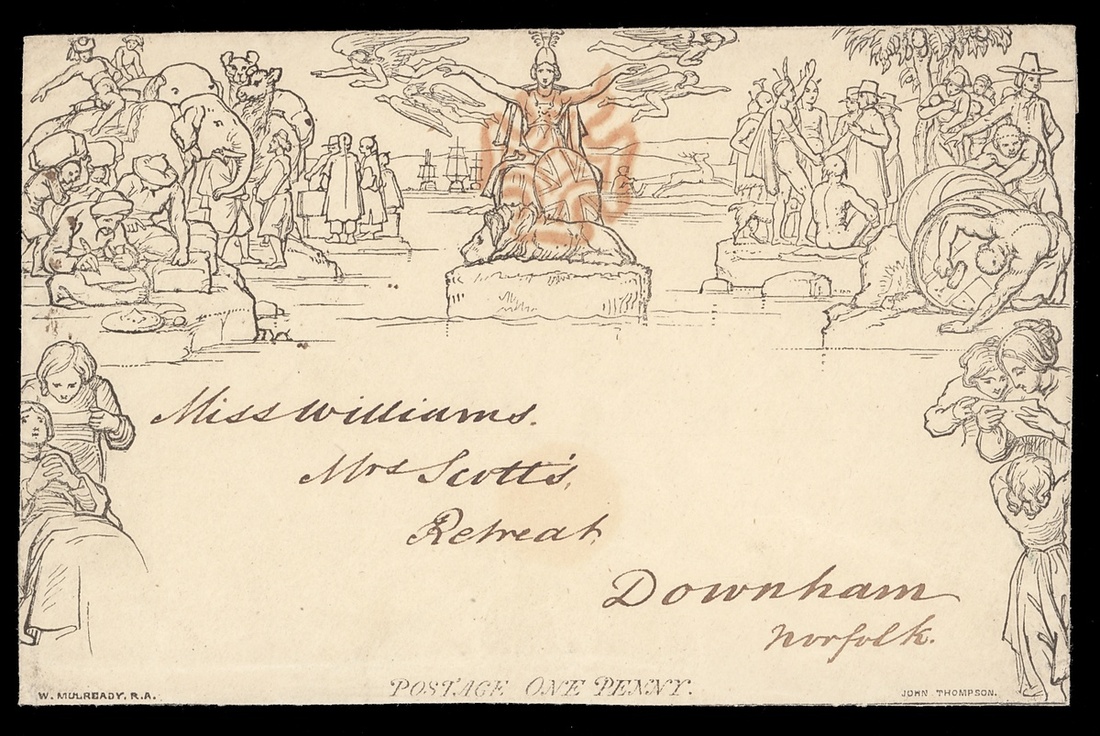 Miss Williams.
Mrs Scott's,
Retreat,
Downham
Norfolk.
POSTAGE ONE PENNY.
W. MULREADY, R.A.
JOHN THOMPSON.